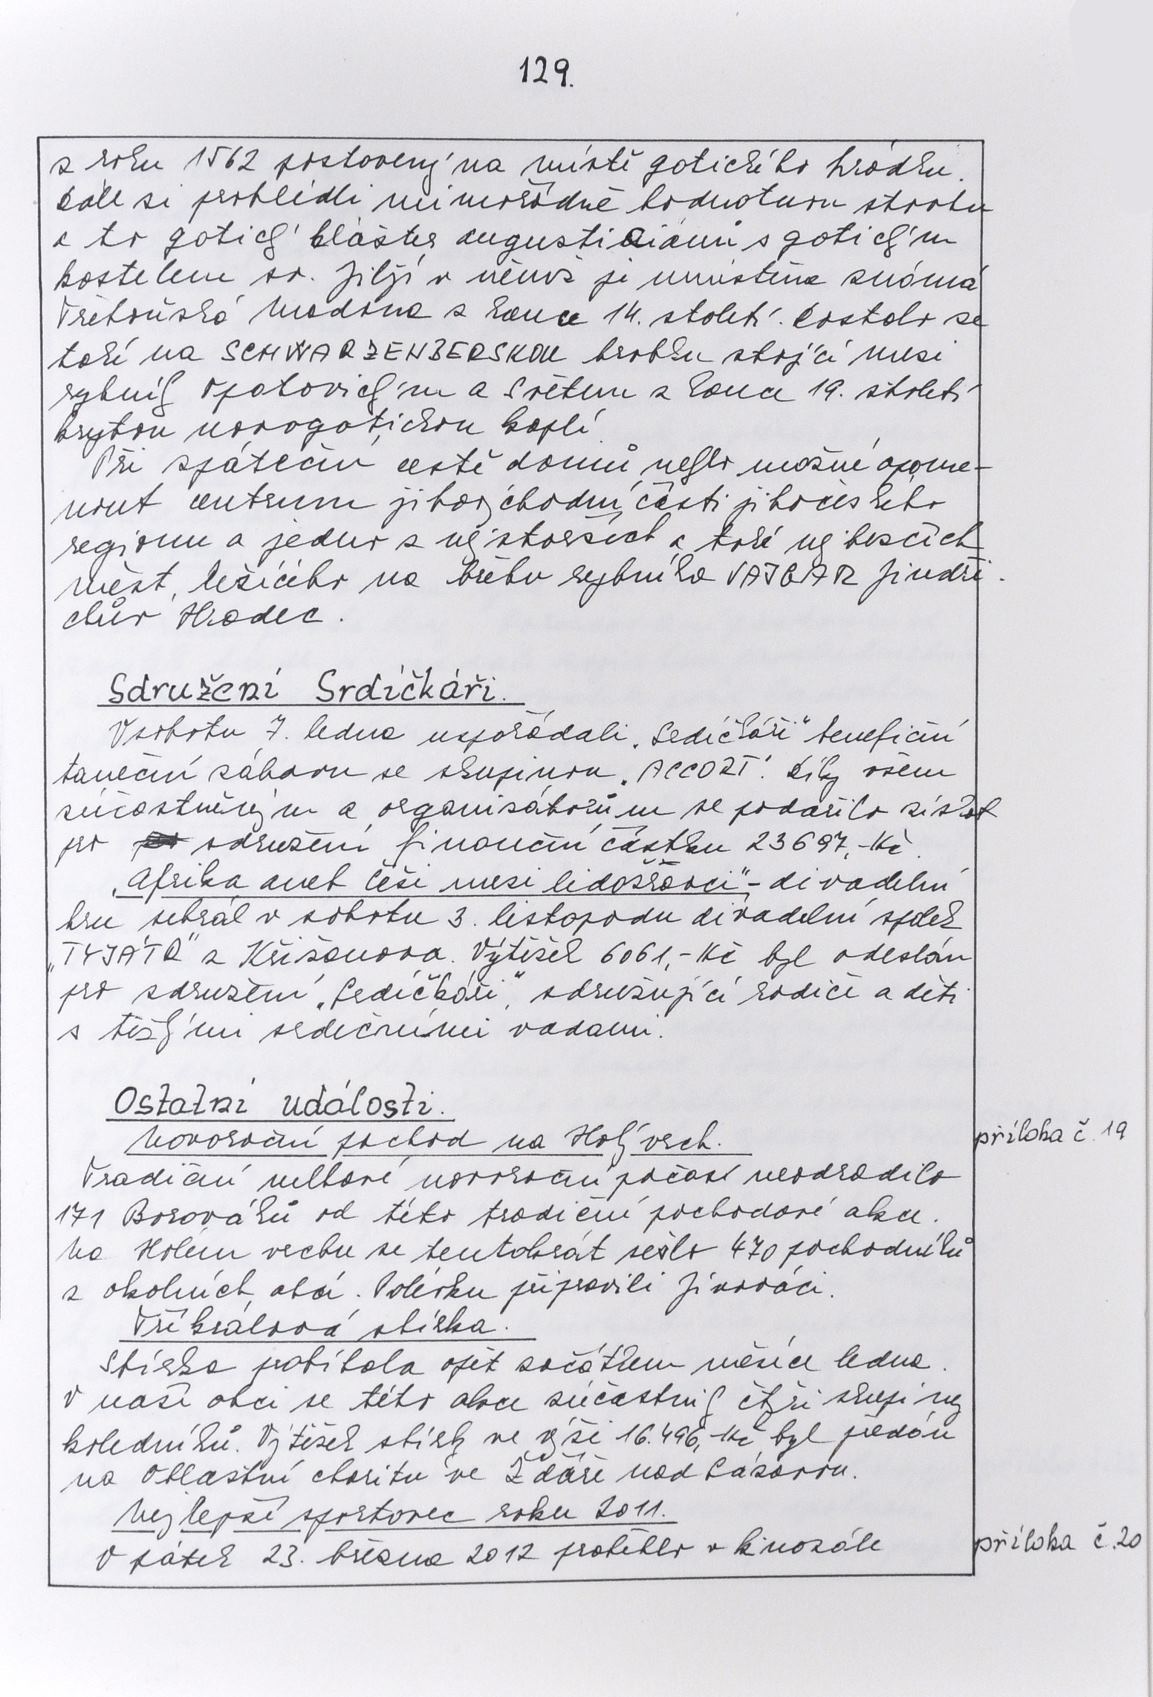 129.
z roku 1562 postavený na místě gotického hrádku.
Dále si prohlédli mimořádně hodnotnou stavbu
a to gotický klášter augustiniánů s gotickým
kostelem sv. Jiljí v němž je umístěna známá
Třeboňská Madona z konce 14. století. Dostalo se
také na SCHWARZENBERSKOU hrobku stojící mezi
rybníky Opatovickým a Světem z konce 19. století
krytou novogotickou kaplí
Při zpáteční cestě domů nešlo možné opome-
nout centrum jihovýchodní části jihočeského
regionu a jedno z nejstarších a také nejhezčích
měst, ležícího na břehu rybníka VAJGAR Jindři-
chův Hradec.
Sdružení Srdíčkáři.
V sobotu 7. ledna uspořádali „Srdíčkáři" benefiční
taneční zábavu se skupinou „ACCORT". Díky všem
zúčastněným a organizátorům se podařilo získat
pro sdružení finanční částku 23697,-Kč.
„Afrika aneb Češi mezi lidožravci" - divadelní
hru sehrál v sobotu 3. listopadu divadelní spolek
„TYJÁTR" z Křižanova. Výtěžek 6061,-Kč byl odeslán
pro sdružení „Srdíčkáři", sdružující rodiče a děti
s těžkými srdečními vadami.
Ostatní události.
Novoroční pochod na Holý vrch.
příloha č. 19
Tradiční mlhavé novoroční počasí neodradilo
171 Borováků od této tradiční pochodové akce.
Na Holém vrchu se tentokrát sešlo 470 pochodníků
z okolních obcí. Polévku připravili Jivováci.
Tříkrálová sbírka.
Sbírka probíhala opět začátkem měsíce ledna.
V naší obci se této akce zúčastnily čtyři skupiny
koledníků. Výtěžek sbírky ve výši 16.496,-Kč byl předán
na Oblastní charitu ve Žďáře nad Sázavou.
Nejlepší sportovec roku 2011.
V pátek 23. března 2012 proběhlo v kinosále
příloha č. 20